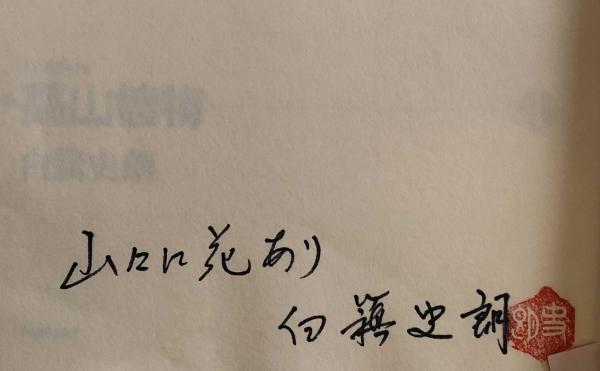 山々に花あり
白籏史朗